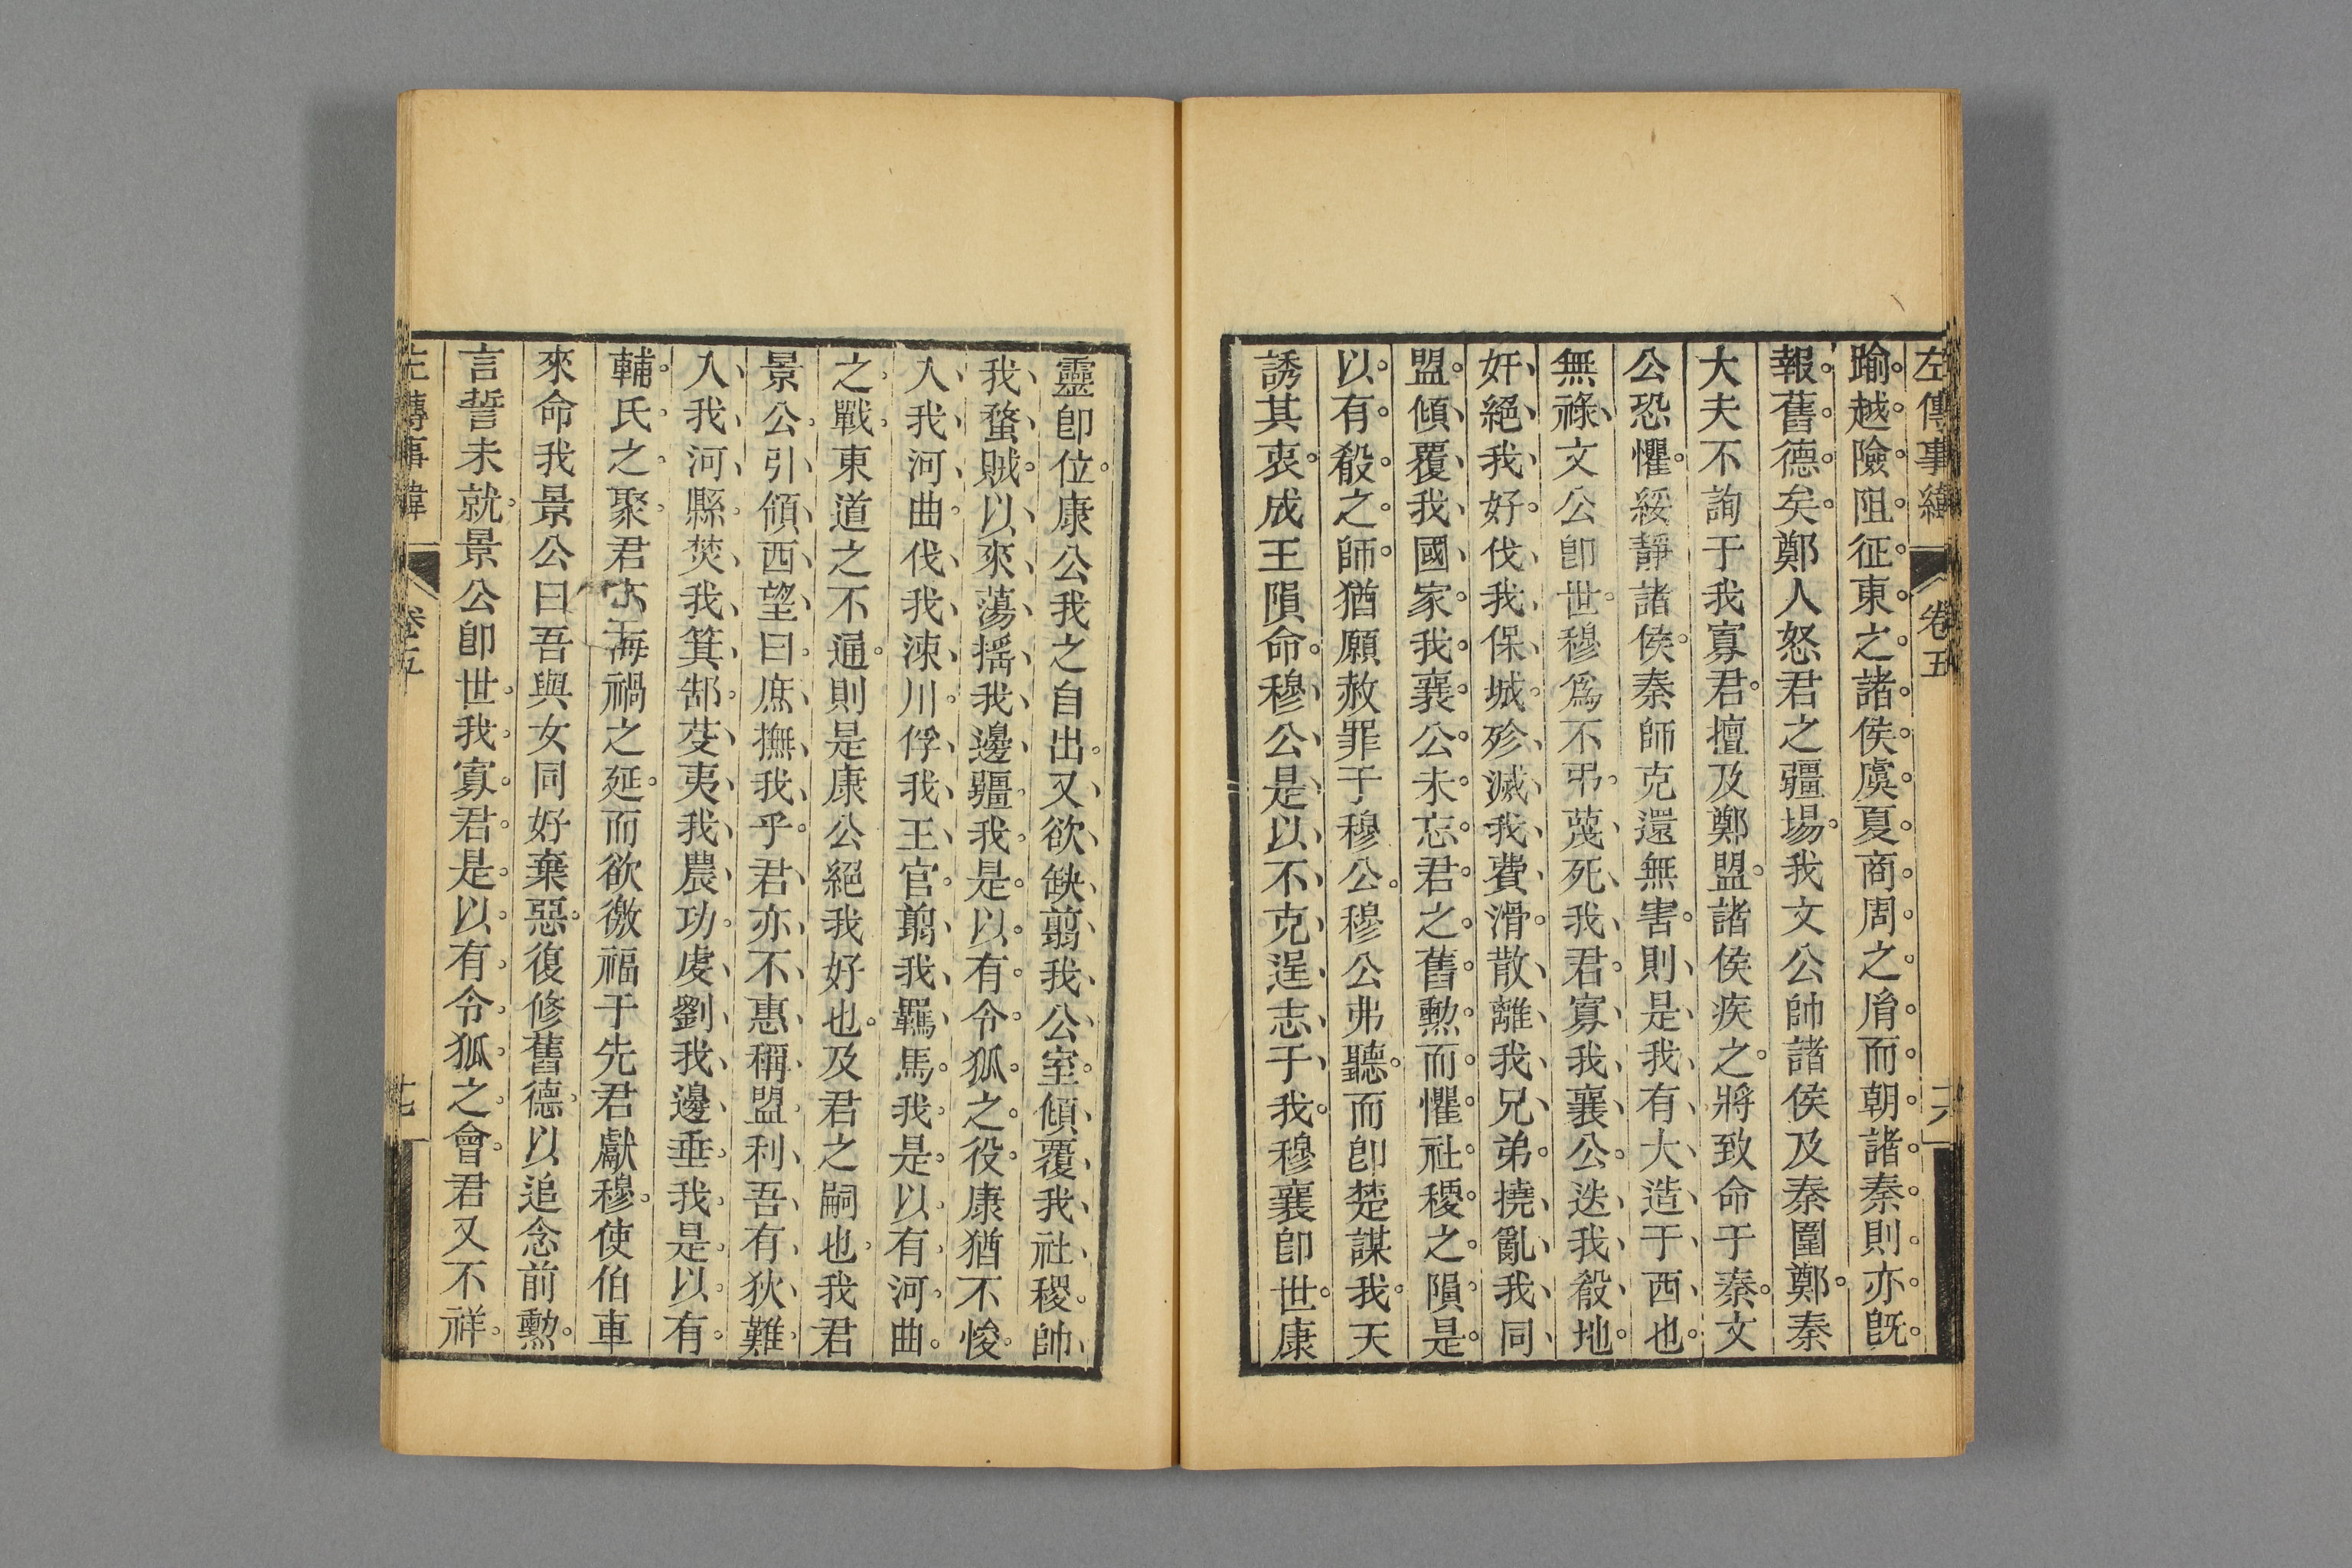 左傳事緯 卷五
踰越險阻征東之諸侯虞夏商周之胤而朝諸秦則亦旣
報舊德矣鄭人怒君之疆埸我文公帥諸侯及秦圍鄭秦
大夫不詢于我寡君擅及鄭盟諸侯疾之將致命于秦文
公恐懼綏靜諸侯秦師克還無害則是我有大造于西也
無祿文公卽世穆爲不弔蔑死我君寡我襄公迭我殽地
奸絕我好伐我保城殄滅我費滑散離我兄弟撓亂我同
盟傾覆我國家我襄公未忘君之舊勲而懼社稷之隕是
以有殽之師猶願赦罪于穆公穆公弗聽而卽楚謀我天
誘其衷成王隕命穆公是以不克逞志于我穆襄卽世康
靈卽位康公我之自出又欲缺翦我公室傾覆我社稷帥
我蝥賊以來蕩搖我邊疆我是以有令狐之役康猶不悛
入我河曲伐我涑川俘我王官翦我羈馬我是以有河曲
之戰東道之不通則是康公絕我好也及君之嗣也我君
景公引領西望曰庶撫我乎君亦不惠稱盟利吾有狄難
入我河縣焚我箕郜芟夷我農功虔劉我邊垂我是以有
輔氏之聚君亦悔禍之延而欲徼福于先君獻穆使伯車
來命我景公曰吾與女同好棄惡復修舊德以追念前勲
言誓未就景公卽世我寡君是以有令狐之會君又不祥
左傳事緯 卷五